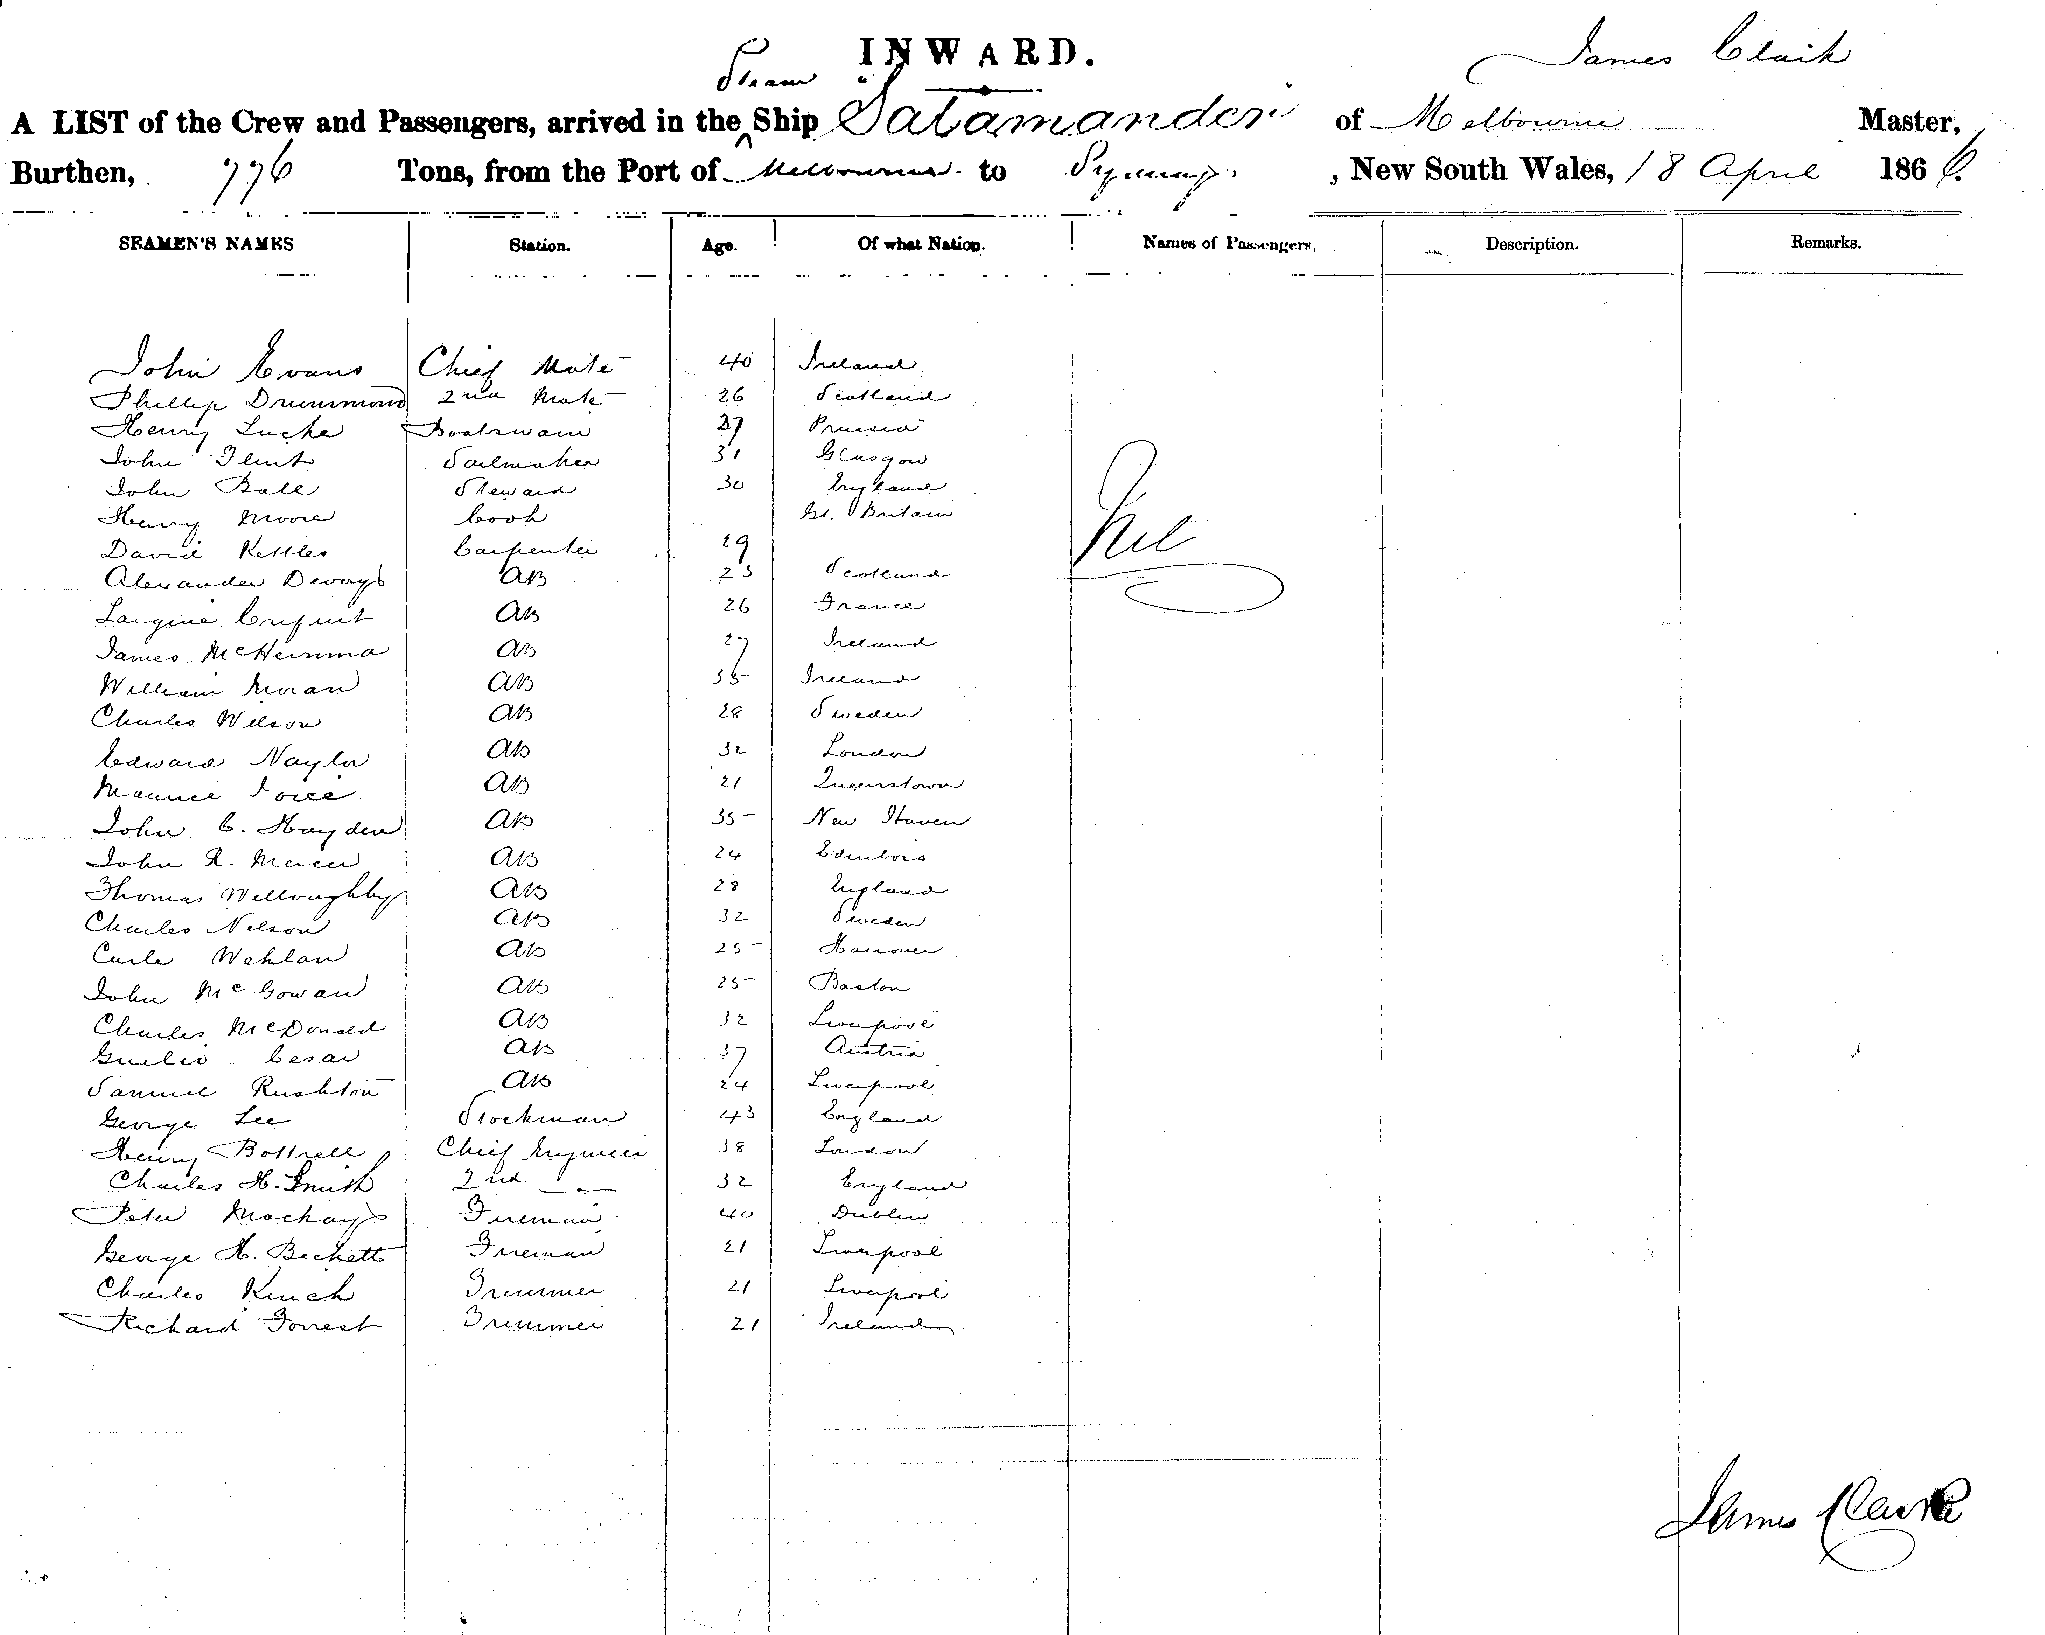 INWARD.
James Clark
Steam
A LIST of the Crew and Passengers, arrived in the Ship "Salamander" of Melbourne Master,
Burthen, 776 Tons, from the Port of Melbourne to Sydney, New South Wales, 18 April 1866.
SEAMEN'S NAMES Station. Age. Of what Nation. Names of Passengers. Description. Remarks.
John Evans Chief Mate 40 Ireland
Phillip Drummond 2nd Mate 26 Scotland
Henry Boatswain Prussia
John Flint Sailmaker 31 Glasgow
John Ball Steward 30 England
Henry Moore Cook Gt. Britain
David Kettles Carpenter 29
Alexander AB 23 Scotland
AB 26 France
James AB 27 Ireland
William Moran AB 35 Ireland
Charles Wilson AB 28 Sweden
Edward Naylor AB 32 London
Maurice AB 21 Queenstown
John C. Hayden AB 35 New Haven
John R. Mercer AB 24
Thomas Willoughby AB 28 England
Charles Nelson AB 32 Sweden
Carle Wehlan AB 25 Hanover
John McGowan AB 25 Boston
Charles McDonald AB 32 Liverpool
Guelio Cesar AB 37 Austria
Samuel Rushton AB 24 Liverpool
George Lee Stockman 43 England
Henry Bottrell Chief Engineer 38 London
Charles H. Smith 2nd 32 England
Peter Mackay Fireman 40 Dublin
George H. Beckett Fireman 21 Liverpool
Charles Kinch Trimmer 21 Liverpool
Richard Forrest Trimmer 21 Ireland
Nil
James Clark